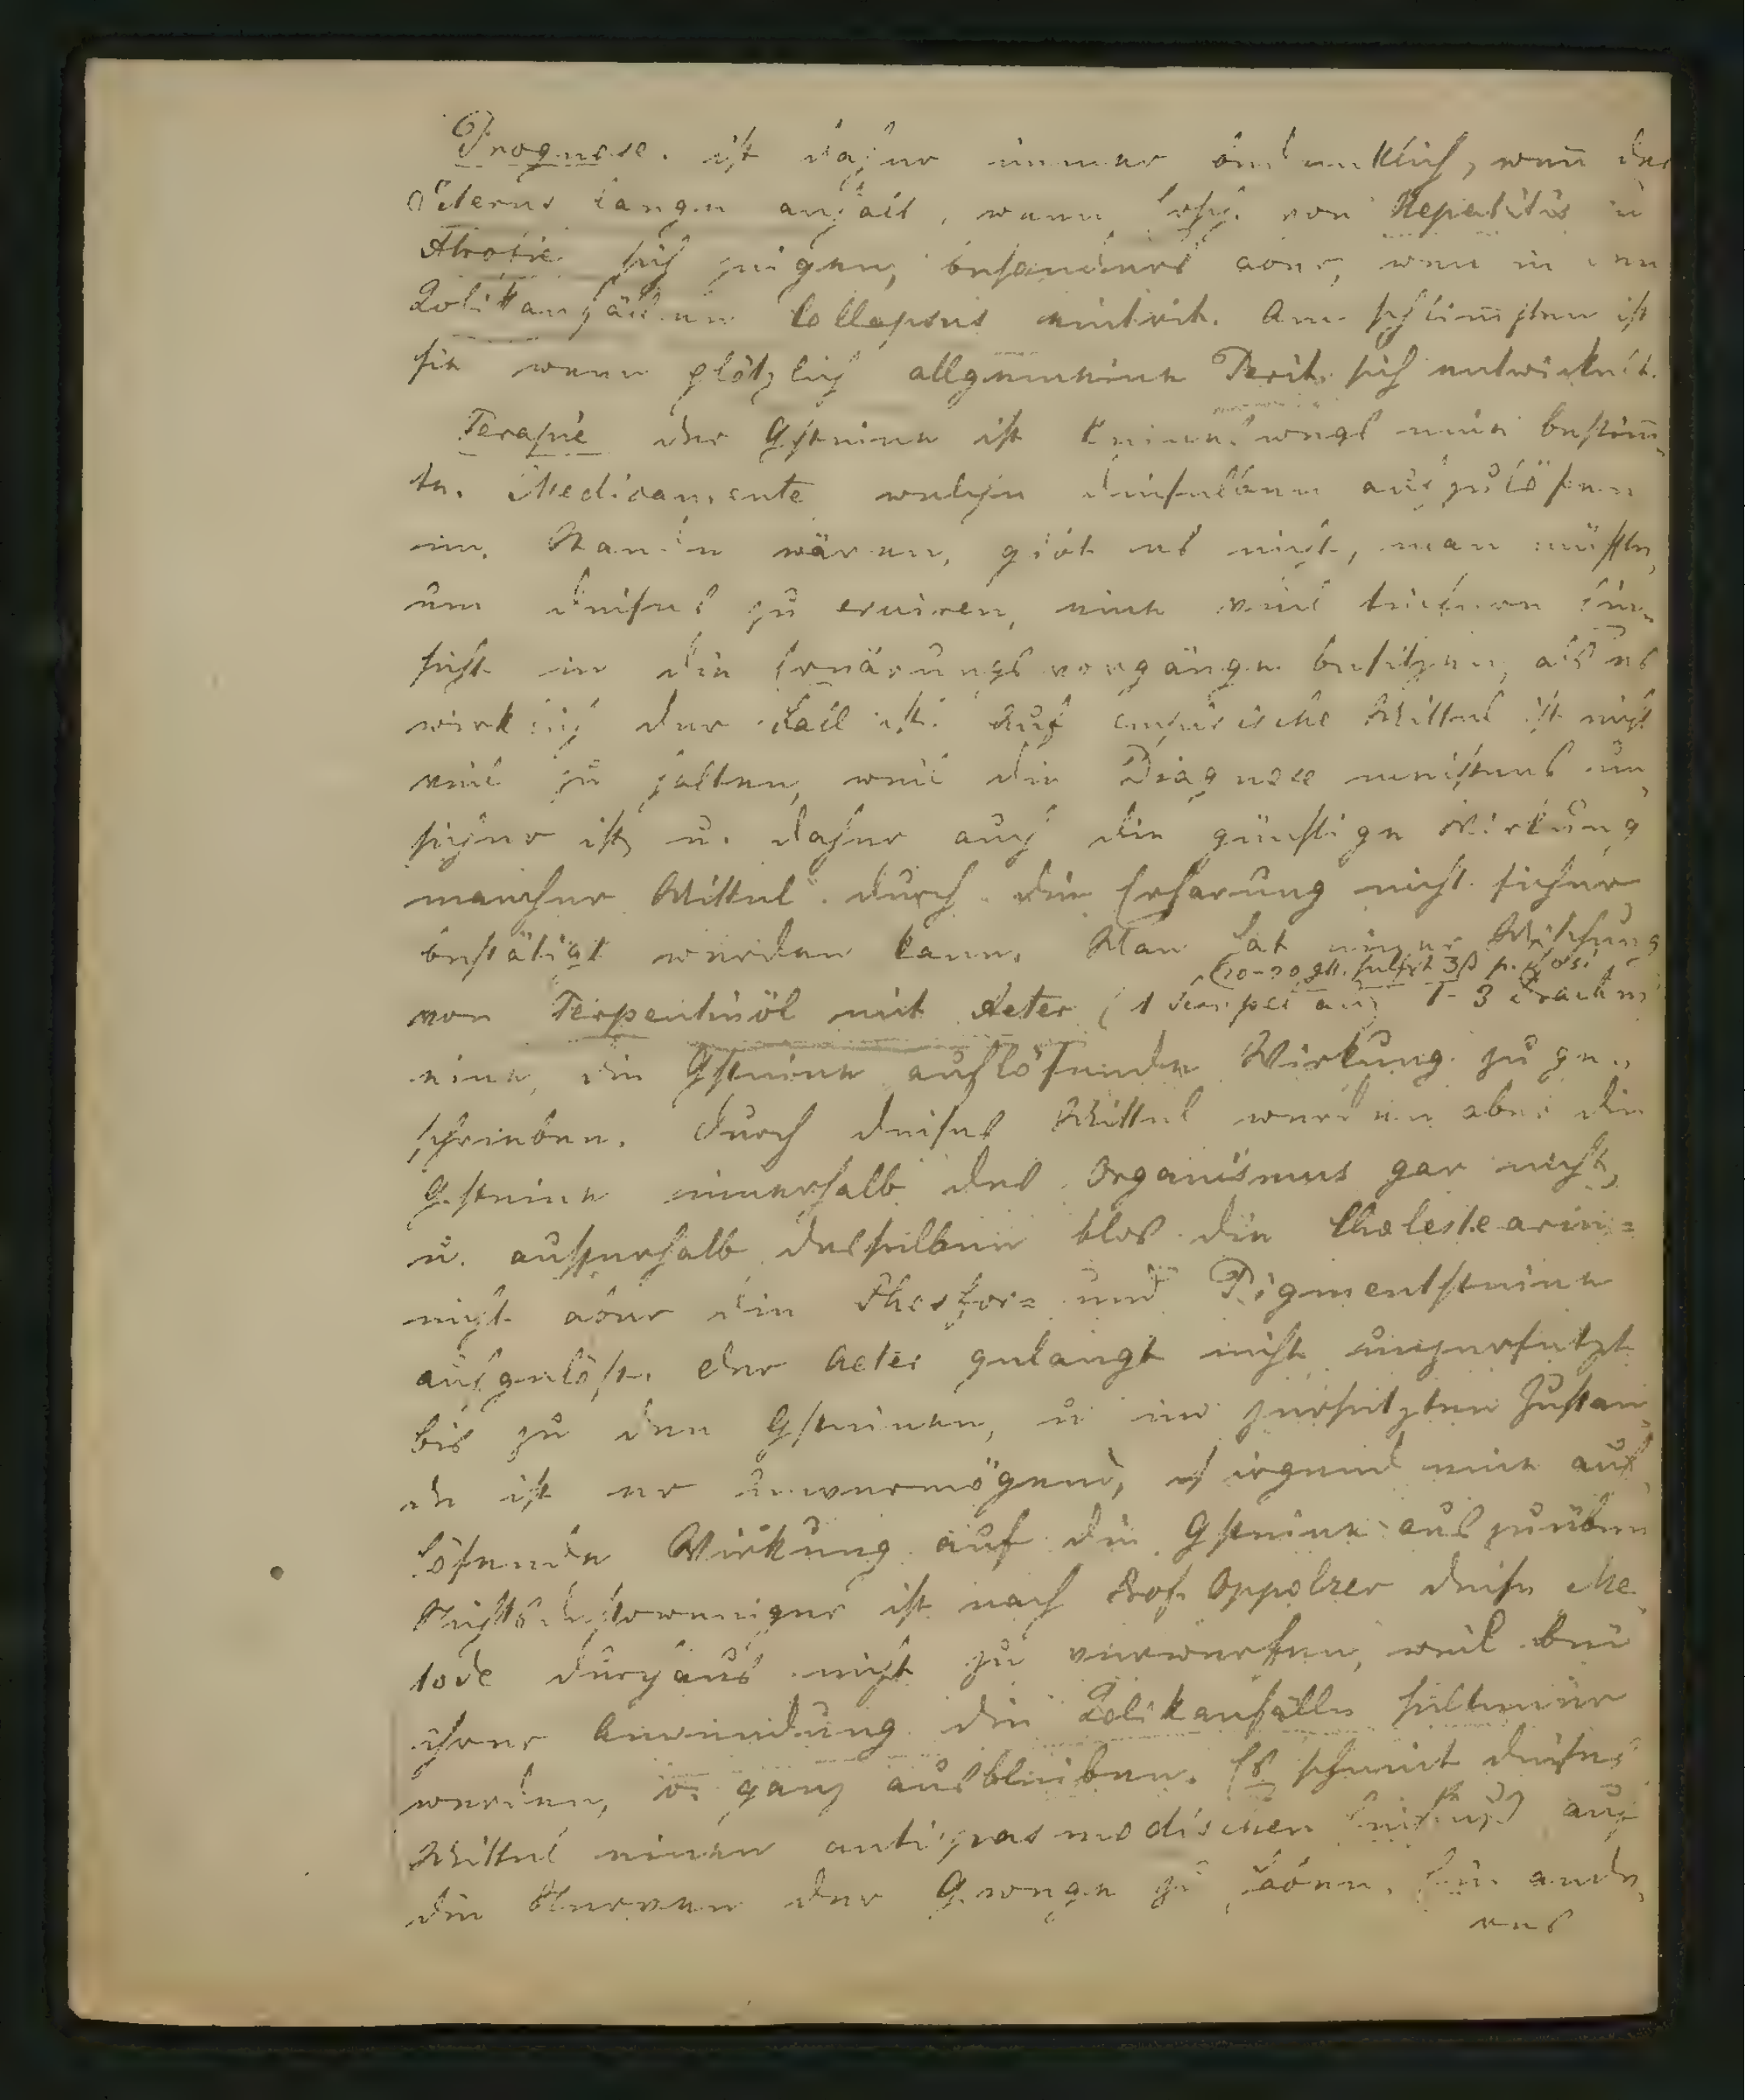 Prognose. ist daher immer bedenklich, wen̄ der
Icterus lange anhält, wenn sich von Hepatitis u
Atrofie sich zeigen, besonders aber, wenn in den
Kolikanfällen Collapsus eintrit. Am schlim̄sten ist
sie wenn plötzlich allgemeine Perit. sich entwickelt.
Terapie der Gsteine ist keineswegs eine bestim̄
te. Medicamente welche dieselben aufzulösen
im Stande wären, gibt es nicht, man müsste,
um dieses zu eruiren, eine viel tiefere Ein
sicht in die Ernärungsvorgänge besitzen, als es
wirklich der Fall ist. Auf empirische Mittel ist nicht
viel zu halten, weil die Diagnose meistens un
sicher ist, u. daher auch die günstige Wirkung
mancher Mittel durch die Erfarung nicht sicher
bestätigt werden kann. Man hat einer Mischung
von Terpentinöl mit Aeter (1 Scrupel auf 1-3 Drachm
(20-30 gtt. selbst 3ß p. dosi
eine, die Gsteine auflösende Wirkung zu ge
schrieben. Durch dieses Mittel werden aber die
Gsteine innerhalb des Organismus gar nicht,
u. ausserhalb desselben blos die Cholestearin=
nicht aber die Phosfor= und Pigmentsteine
aufgelöst. Der Aeter gelangt nicht unzersetzt
bis zu den Gsteinen, u im zersetzten Zustan
de ist er unvermögend, irgend eine auf
lösende Wirkung auf die Gsteine auszuüben
Nichtsdestoweniger ist nach Prof. Oppolzer diese Me
tode durchaus nicht zu verwerfen, weil bei
ihrer Anwendung die Kolikanfälle seltener
werden, o. ganz ausbleiben. Es scheint dieses
Mittel einen antispasmodischen Einfluß auf
die Nerven der Gwege zu haben. Ein ande
res